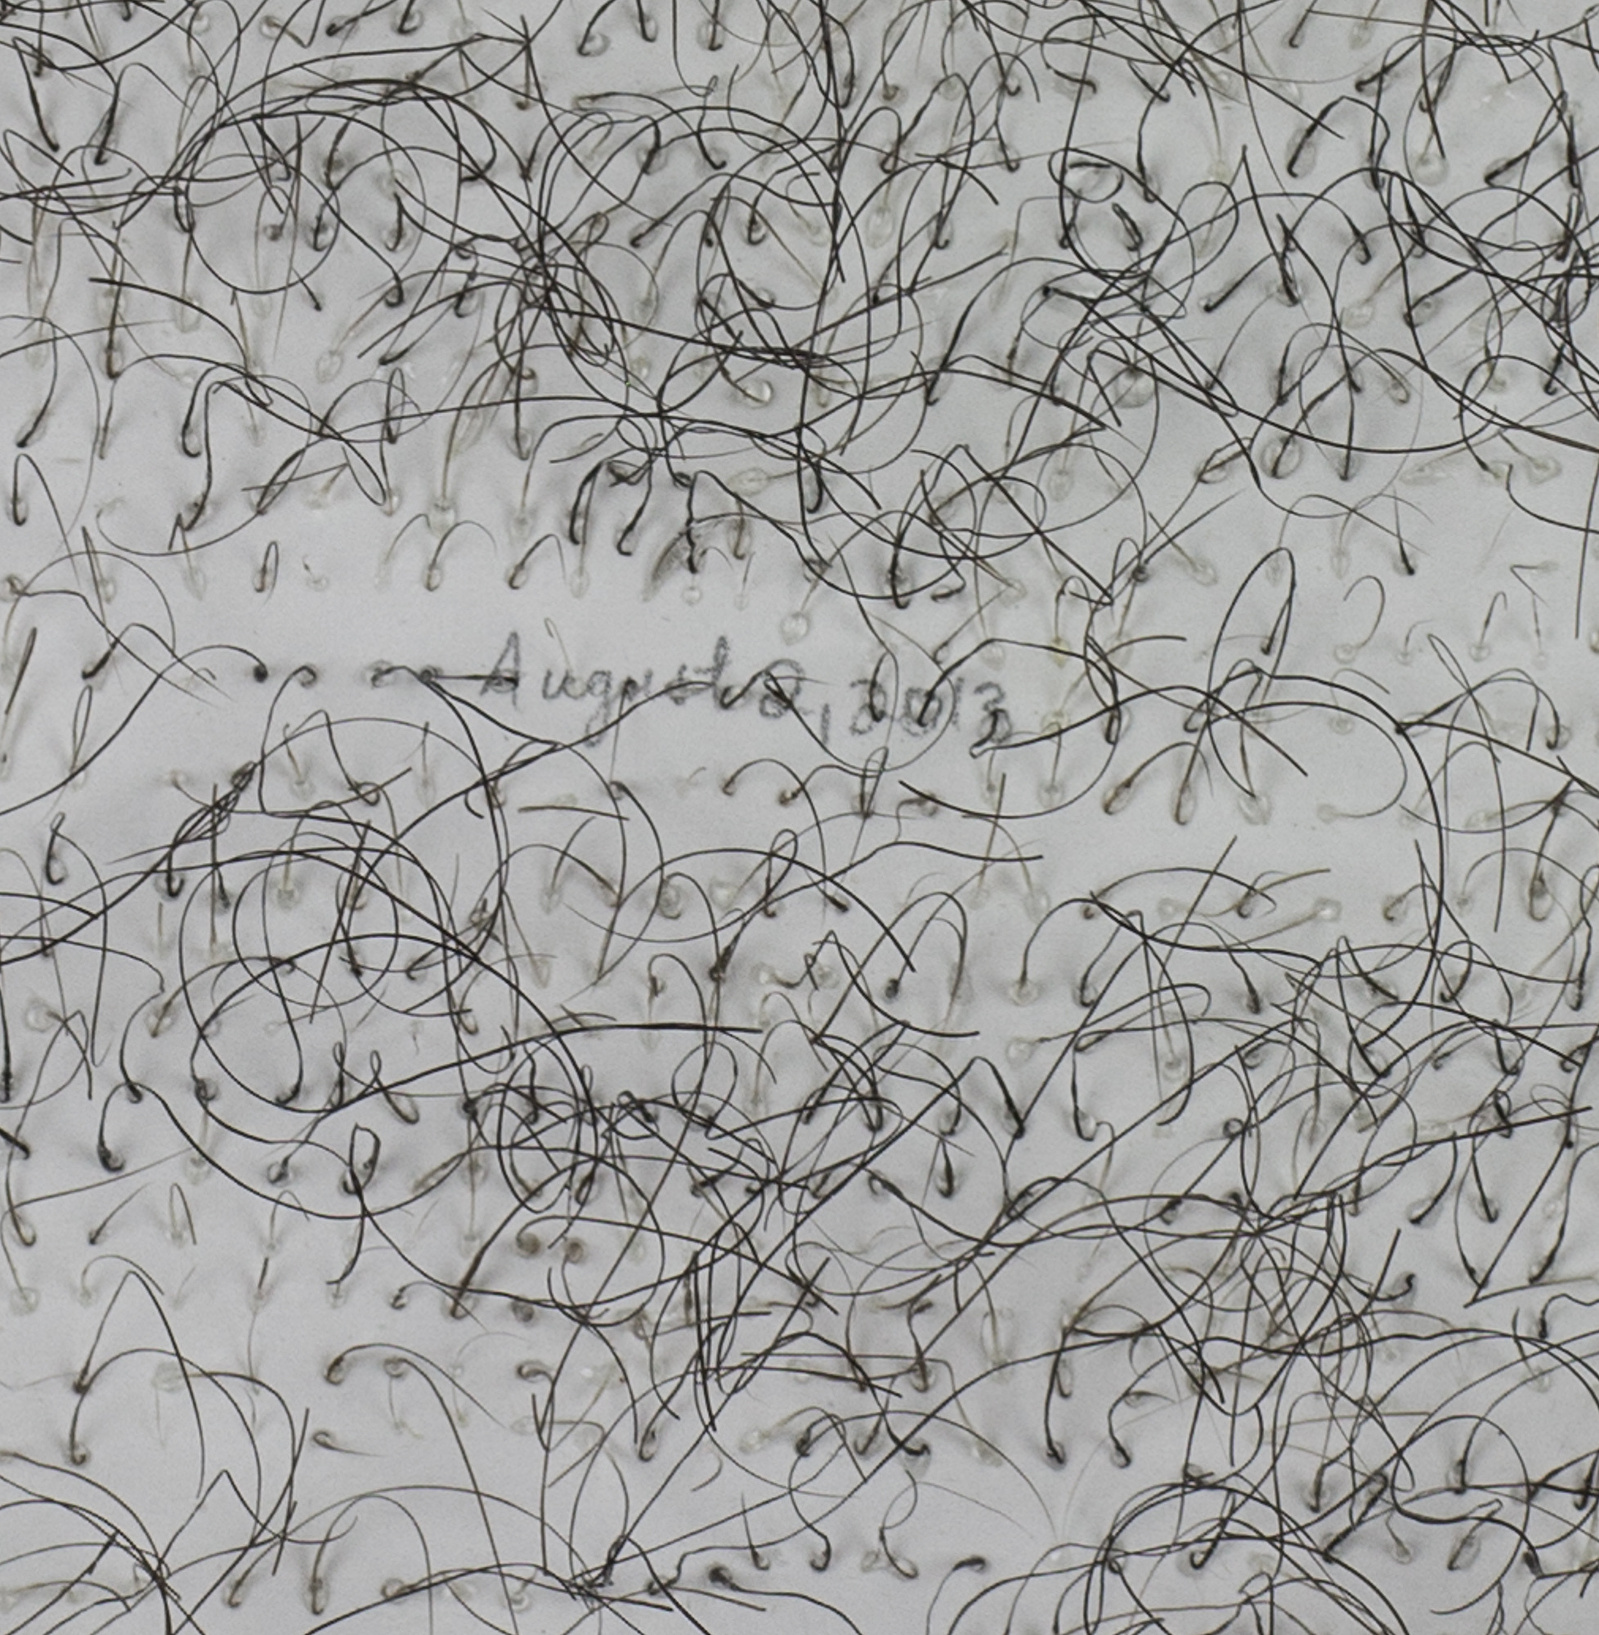 August 2, 2013